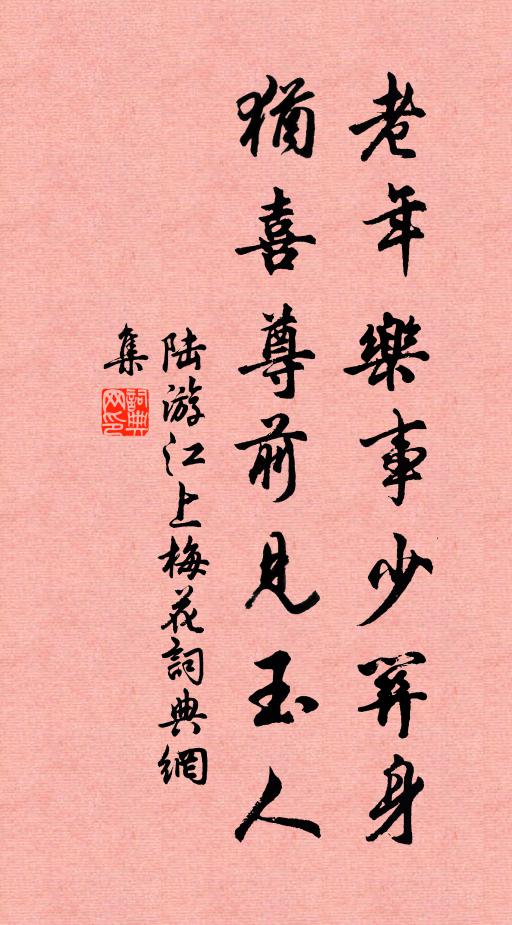 老年樂事少關身
猶喜尊前見玉人
陸游江上梅花詞典網
集
詞典
网印